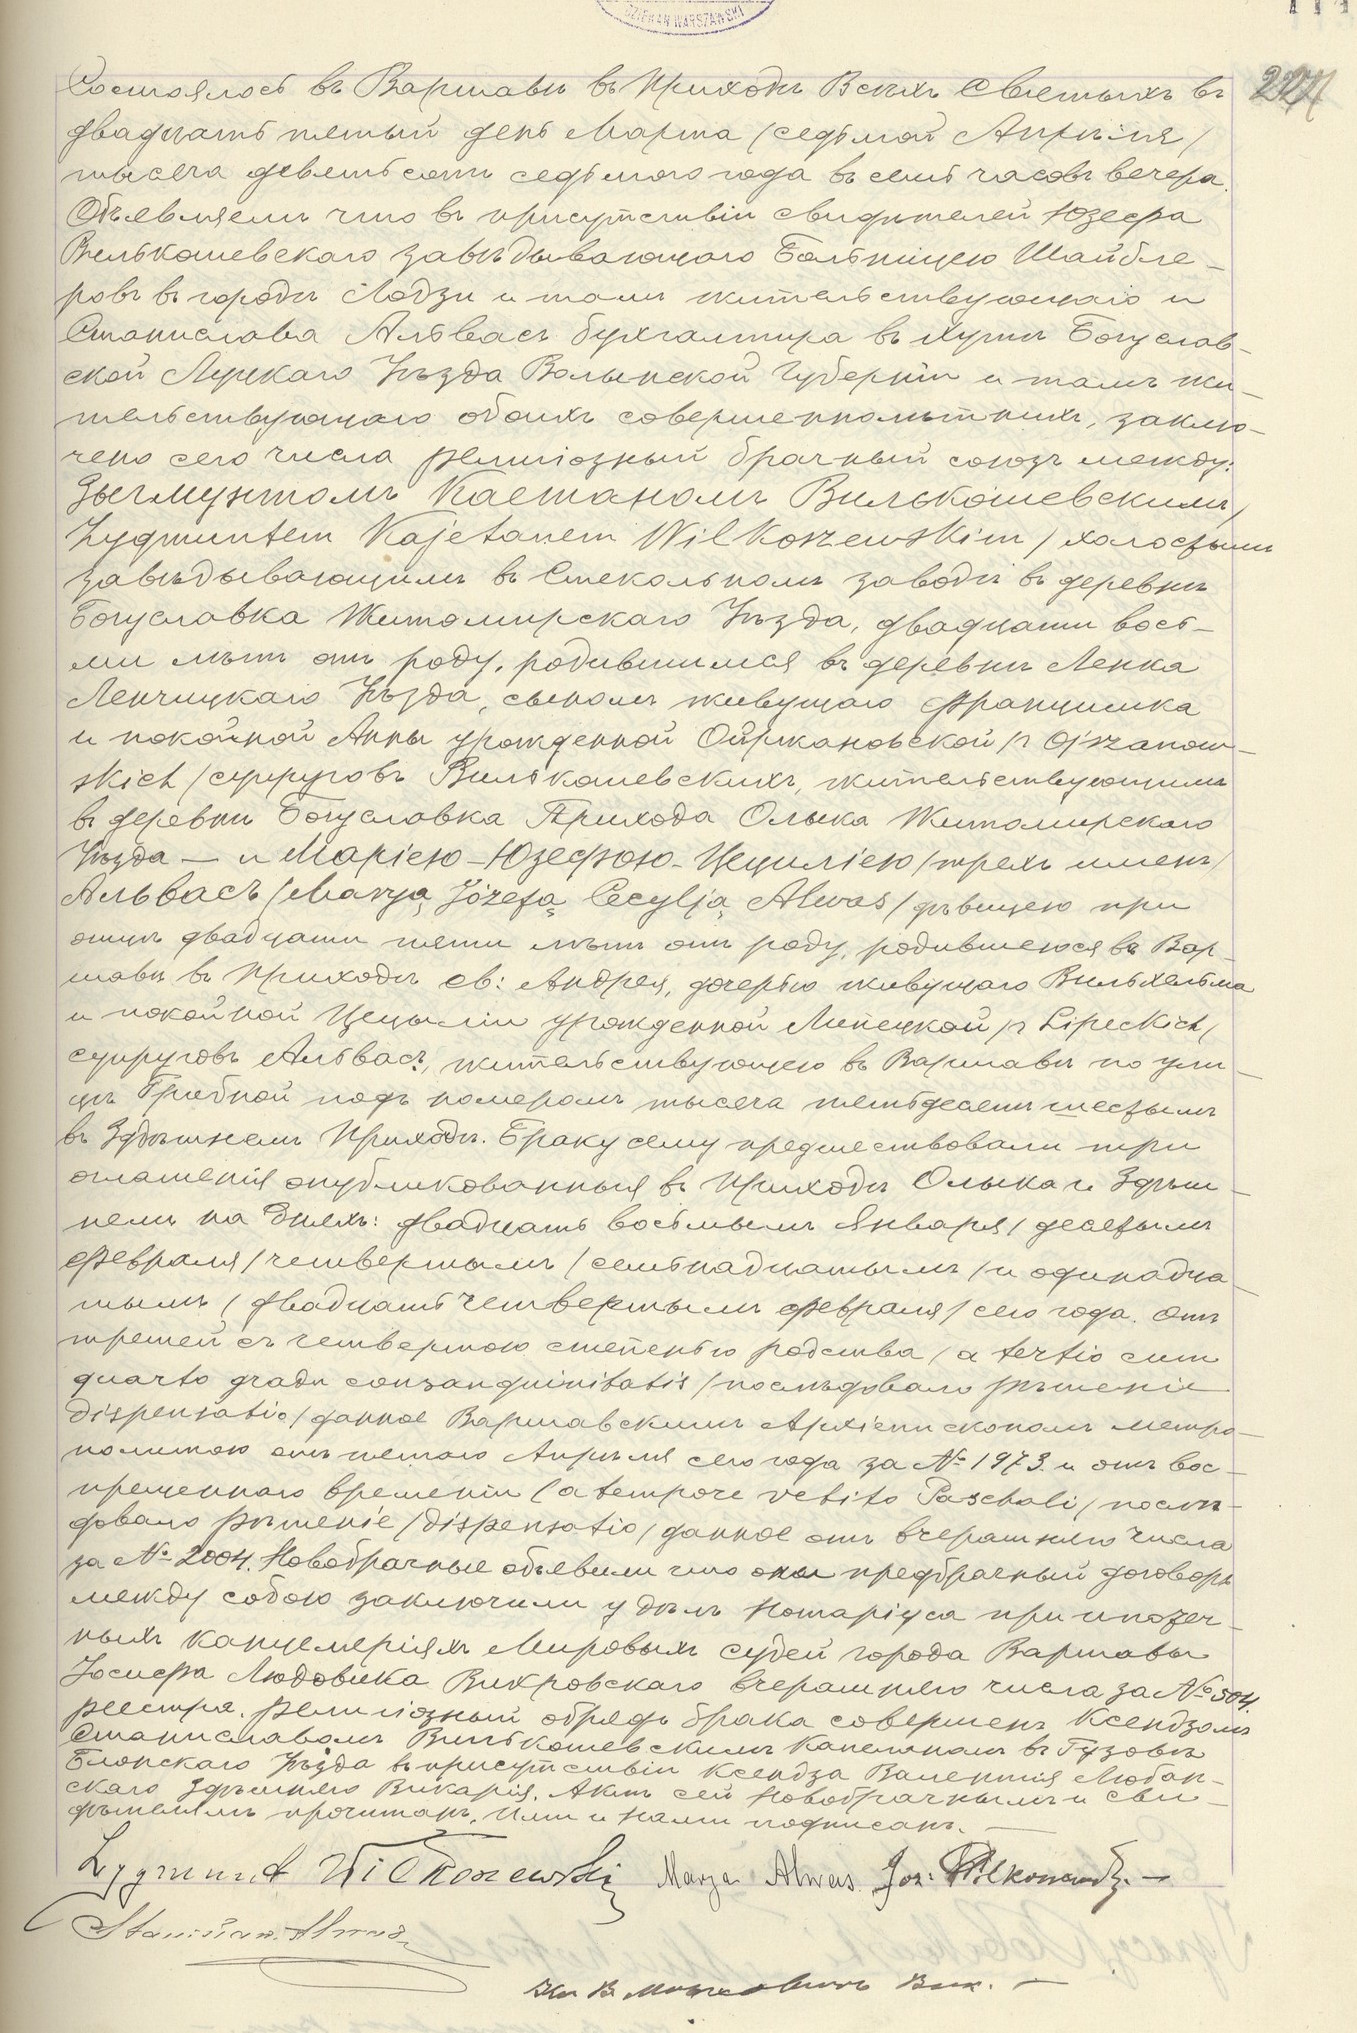 DZIEKAN WARSZAWSKI
227
Состоялось въ Варшавѣ въ Приходѣ Всѣхъ Святыхъ въ
двадцать пятый день Марта /седьмой Апрѣля/
тысяча девятьсотъ седьмого года въ семь часовъ вечера.
Объявляемъ что въ присутствіи свидѣтелей Юзефа
Вилькошевскаго завѣдывающаго Больницею Шайбле-
ровъ въ городѣ Лодзи и тамъ жительствующаго и
Станислава Альвасъ бухгалтера въ Хутѣ Богуслав-
ской Луцкаго Уѣзда Волынской Губерніи и тамъ жи-
тельствующаго обоихъ совершеннолѣтнихъ, заклю-
чено сего числа религіозный брачный союзъ между:
Зыгмунтомъ Каетаномъ Вилькошевскимъ/
Zygmuntem Kajetanem Wilkoszewskim/ холостымъ
завѣдывающимъ въ Стекольномъ заводѣ въ деревнѣ
Богуславка Житомирскаго Уѣзда, двадцати вось-
ми лѣтъ отъ роду, родившимся въ деревнѣ Ленка
Ленчицкаго Уѣзда, сыномъ живущаго Францишка
и покойной Анны урожденной Ойржановской /z Ojrzanow-
skich/ супруговъ Вилькошевскихъ, жительствующимъ
въ деревнѣ Богуславка Прихода Олыка Житомирскаго
Уѣзда — и Маріею-Юзефою-Цециліею /трехъ именъ/
Альвасъ /Maryą Józefą Cecylją Alwas/ дѣвицею при
отцѣ двадцати пяти лѣтъ отъ роду, родившеюся въ Вар-
шавѣ въ Приходѣ св: Андрея, дочерью живущаго Вильхельма
и покойной Цецыліи урожденной Липецкой /z Lipeckich/
супруговъ Альвасъ, жительствующею въ Варшавѣ по ули-
цѣ Грибной подъ номеромъ тысяча пятьдесятъ шестымъ
въ Здѣшнемъ Приходѣ. Браку сему предшествовали три
оглашенія опубликованныя въ Приходѣ Олыка и Здѣш-
немъ на дняхъ: двадцать восьмымъ Января /десятымъ
Февраля/ четвертымъ /семьнадцатымъ/ и одинадца-
тымъ /двадцать четвертымъ Февраля/ сего года. Отъ
третей съ четвертою степенью родства /a tertio cum
quarto gradu consanquinitatis/ послѣдовало рѣшеніе
dispensatio/ данное Варшавскимъ Архіепископомъ метро-
политою отъ пятаго Апрѣля сего года за № 1973 и отъ вос-
прещеннаго времени /a tempore vetito Paschali/ послѣ-
довало рѣшеніе /dispensatio/ данное отъ вчерашняго числа
за № 2004. Новобрачные объявили что они предбрачный договоръ
между собою заключили у дѣлъ Нотаріуса при ипотеч-
ныхъ канцеляріяхъ Мировыхъ судей города Варшавы
Іосифа Людовика Вихровскаго вчерашняго числа за № 504.
реестра. Религіозный обрядъ брака совершенъ Ксендзомъ
Станиславомъ Вилькошевскимъ Капеланомъ въ Гузовѣ
Блонскаго Уѣзда въ присутствіи Ксендза Валентія
скаго здѣшняго Викарія. Актъ сей Новобрачнымъ и сви-
дѣтелямъ прочитанъ, Ими и Нами подписанъ. —
Zygmunt Wilkoszewski Marya Alwas Joz: Wilkoszewski. —
Stanisław Alwas